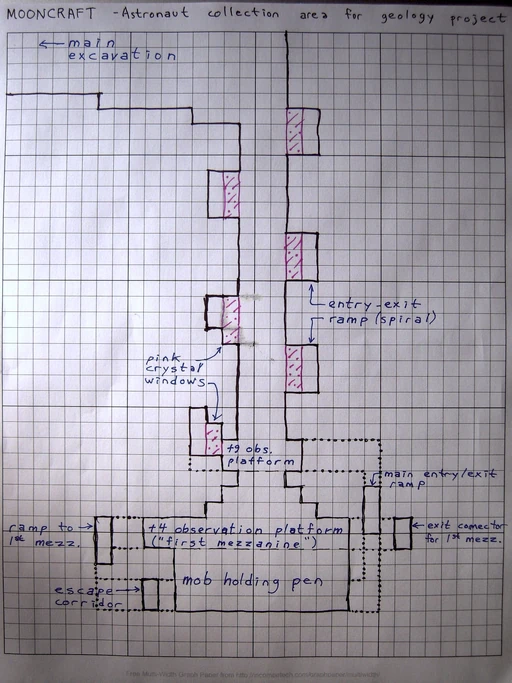 MOONCRAFT - Astronaut collection area for geology project
← main
excavation
entry-exit
ramp (spiral)
pink
crystal
windows
+9 obs.
platform
main entry/exit
ramp
ramp to
1st mezz.
+4 observation platform
("first mezzanine")
exit connector
for 1st mezz.
mob holding pen
escape
corridor